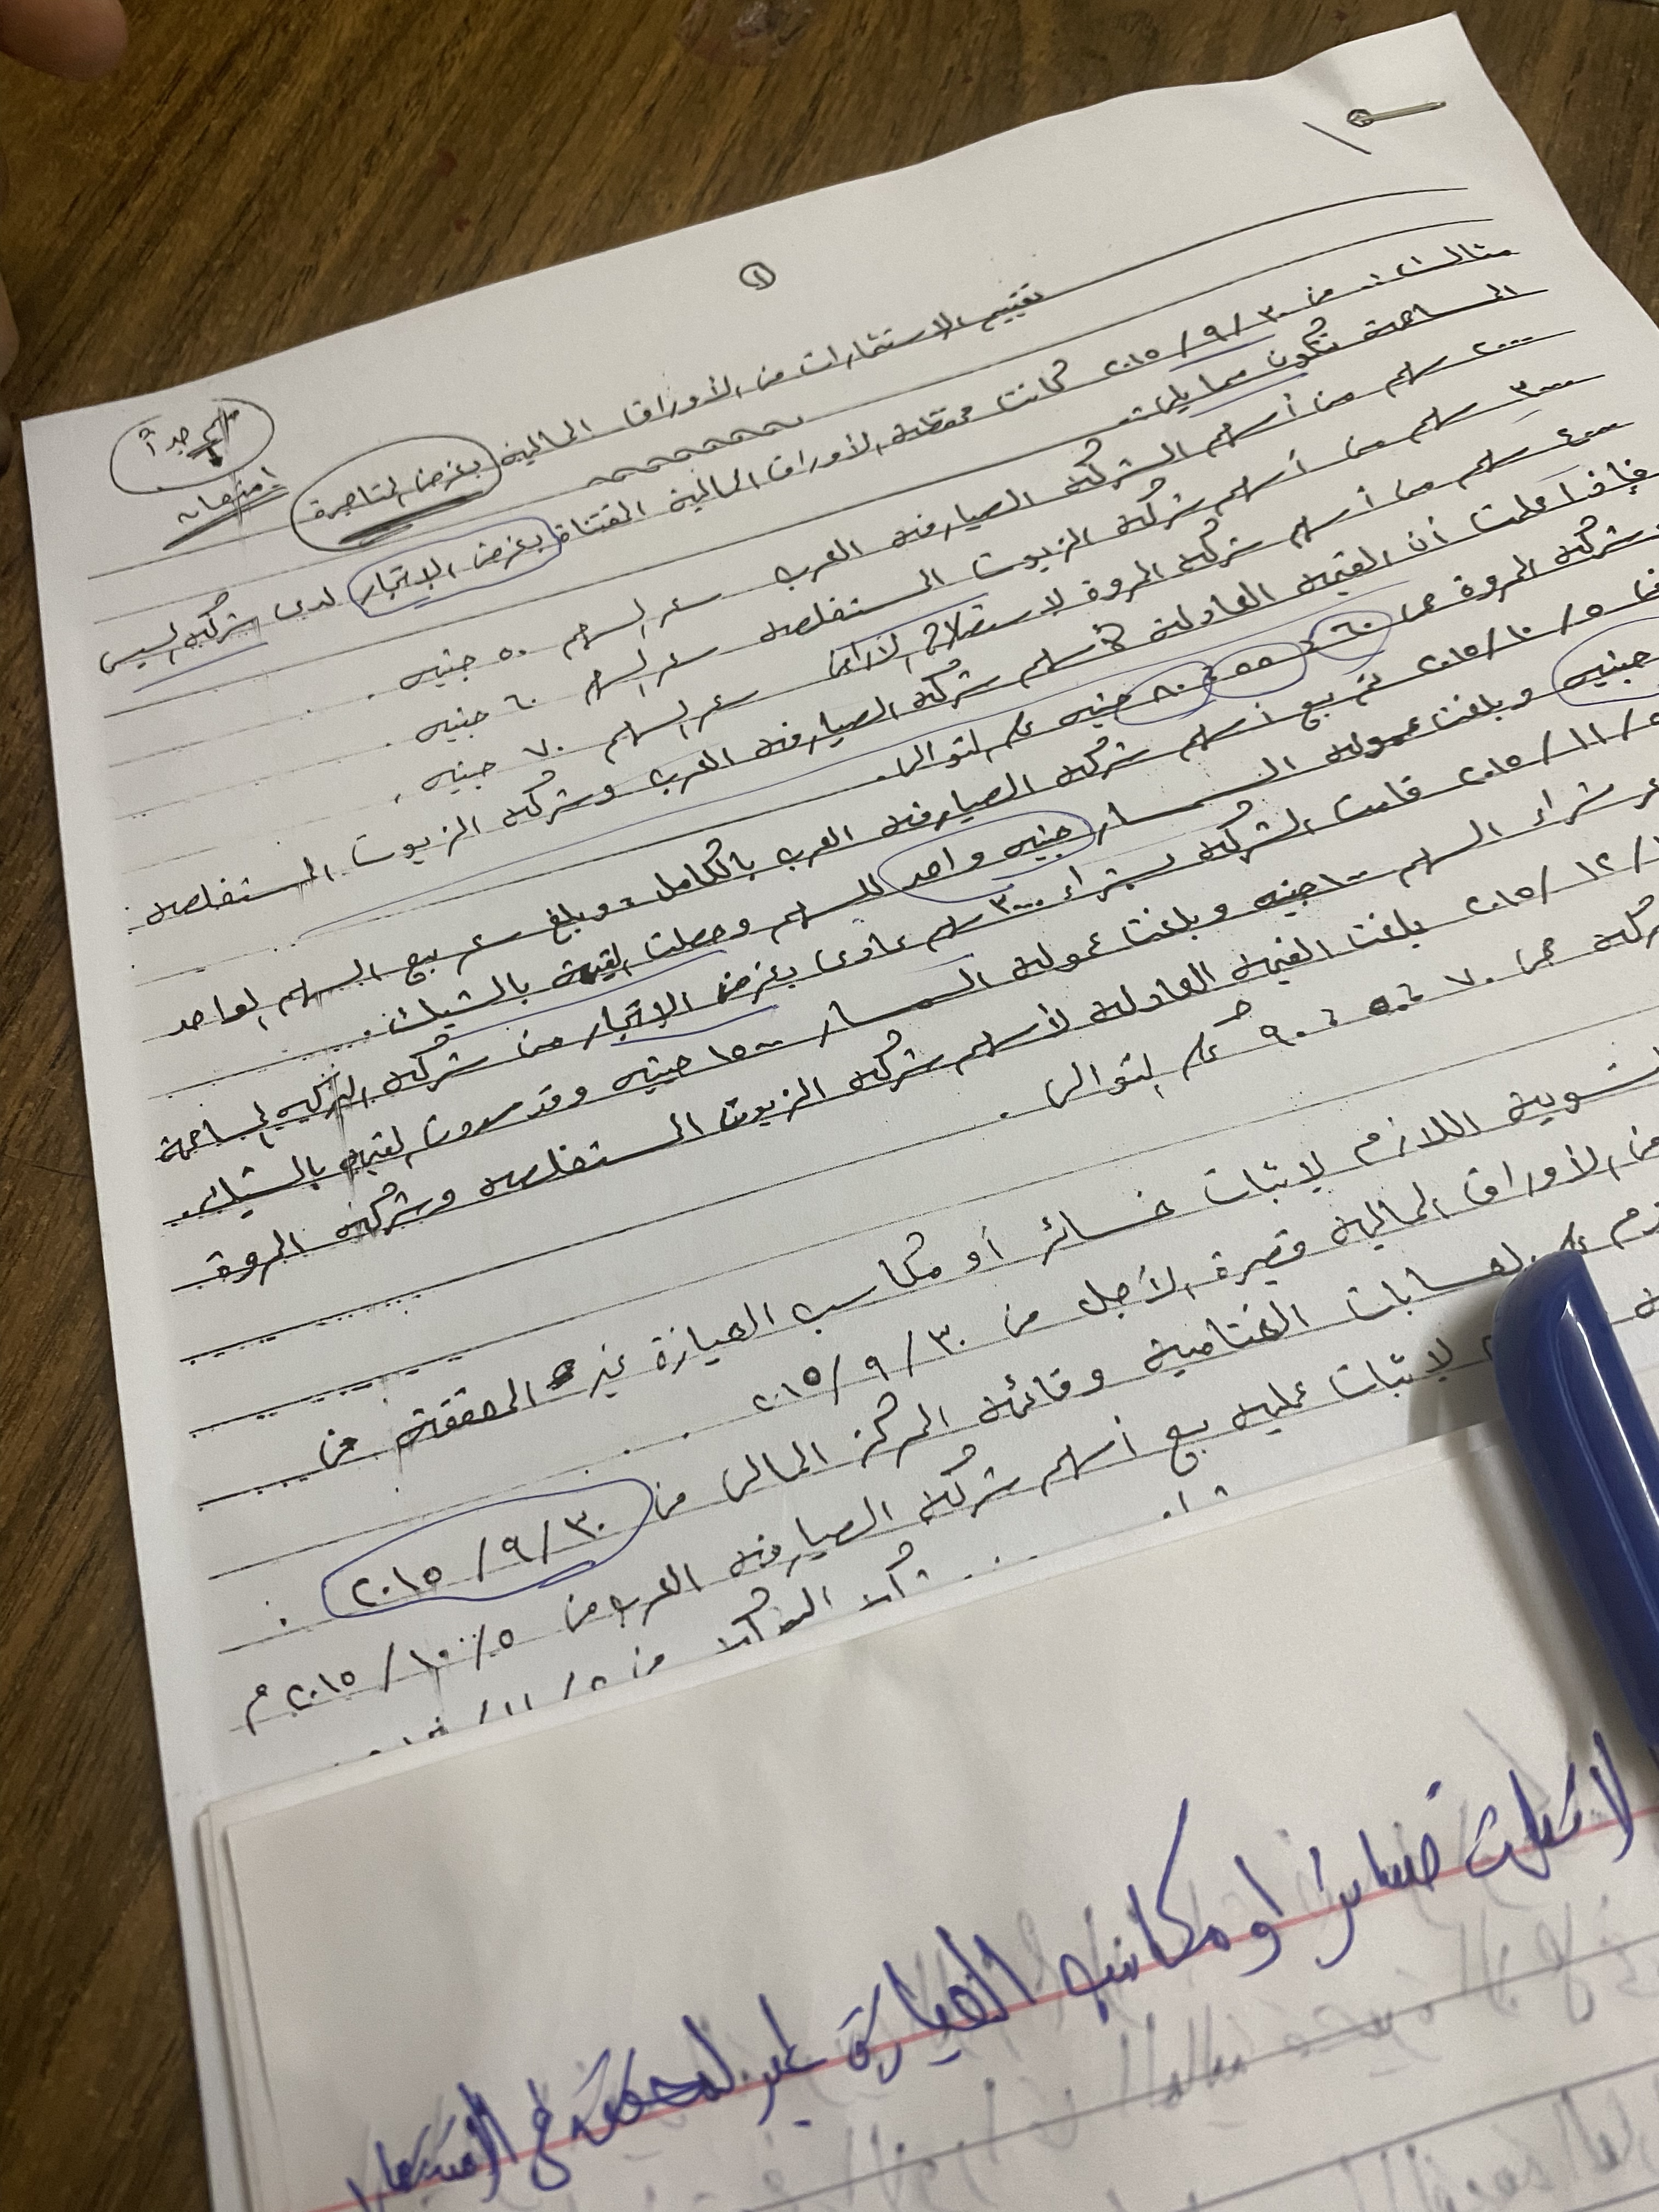 ١١
تقييم الاستثمارات من الأوراق المالية بغرض المتاجرة
مهم جداً
امتحان
مثال: من ٢٠١٥/٩/٣٠ كانت محفظة الأوراق المالية المقتناة بغرض الإتجار لدى شركة
المساهمة تتكون مما يلي:
٢٠٠٠ سهم من أسهم الشركة الصيارفة العرب سعر السهم ٥٠ جنيه.
٣٠٠٠ سهم من أسهم شركة الزيوت المستخلصة سعر السهم ٦٠ جنيه.
٤٠٠٠ سهم من أسهم شركة المروة لاستصلاح الأراضي سعر السهم ٧٠ جنيه.
فإذا علمت أن القيمة العادلة لأسهم شركة الصيارفة العرب وشركة الزيوت المستخلصة
وشركة المروة هي ٦٠، ٥٥، ٨٠ جنيه على التوالي.
٢٠١٥/١٠/٥ تم بيع أسهم شركة الصيارفة العرب بالكامل وبلغ سعر بيع السهم الواحد
جنيه وبلغت عمولة السمسار جنيه واحد للسهم وحصلت القيمة بالشيك.
٢٠١٥/١١/ قامت الشركة بشراء ٣٠٠٠ سهم عادى بغرض الإتجار من شركة المساهمة
شراء السهم ١٠٠ جنيه وبلغت عمولة السمسار ١٥٠٠ جنيه وقد سددت القيمة بالشيك.
٢٠١٥/١٢/ بلغت القيمة العادلة لأسهم شركة الزيوت المستخلصة وشركة المروة
هي ٧٠، ٩٠ على التوالي.
التسوية اللازم لإثبات خسائر أو مكاسب الحيازة غير المحققة من
من الأوراق المالية قصيرة الأجل من ٢٠١٥/٩/٣٠
الحسابات الختامية وقائمة المركز المالي من ٢٠١٥/٩/٣٠.
لإثبات عملية بيع أسهم شركة الصيارفة العرب من ٢٠١٥/١٠/٥ م
من ٥/١١/
لاثبات خسائر او مكاسب الحيازة غير المحققة في